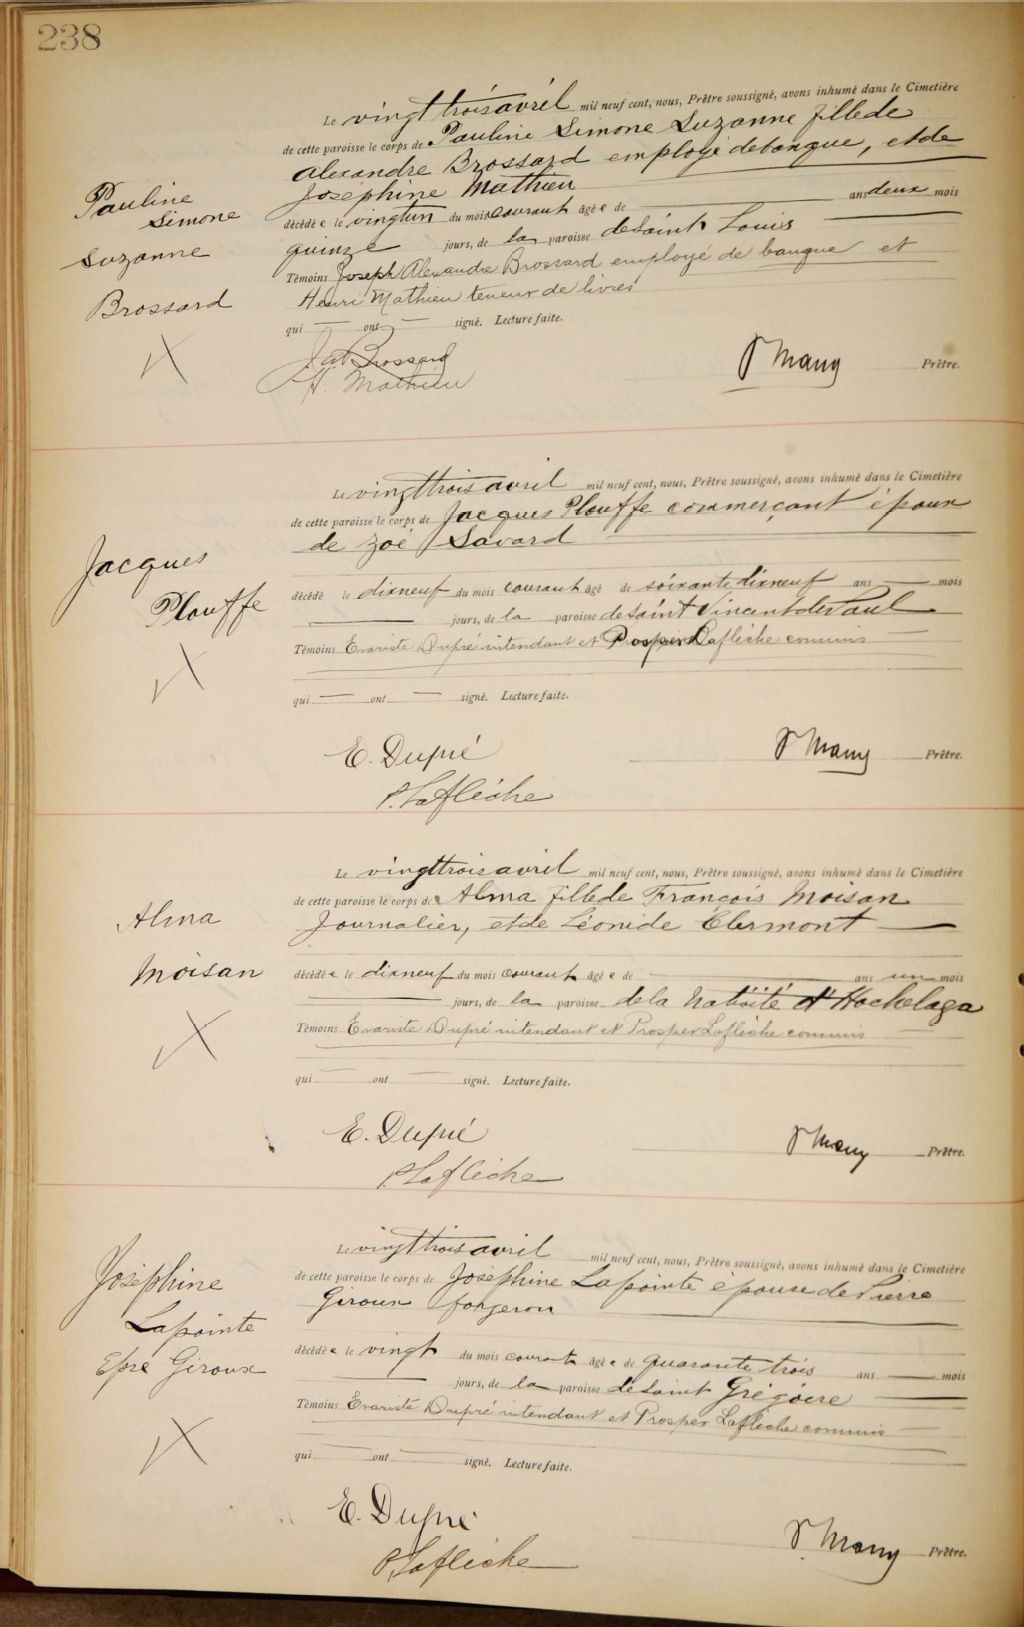 238
Le vingt trois avril mil neuf cent, nous, Prêtre soussigné, avons inhumé dans le Cimetière
de cette paroisse le corps de Pauline Simone Suzanne fille de
Alexandre Brossard employé de banque, et de
Joséphine Mathieu
décédée le vingt un du mois courant âgée de ans deux mois
quinze jours, de la paroisse de Saint Louis
Témoins Joseph Alexandre Brossard employé de banque et
Henri Mathieu teneur de livres
qui ont signé. Lecture faite.
Pauline
Simone
Suzanne
Brossard
J A Brossard
H. Mathieu
P Many Prêtre.
Le vingt trois avril mil neuf cent, nous, Prêtre soussigné, avons inhumé dans le Cimetière
de cette paroisse le corps de Jacques Plouffe commerçant époux
de Zoé Savard
décédé le dixneuf du mois courant âgé de soixante dixneuf ans mois
jours, de la paroisse de Saint Vincent de Paul
Témoins Evariste Dupré intendant et Prosper Laflèche commis
qui ont signé. Lecture faite.
Jacques
Plouffe
E. Dupré
P. Laflèche
P Many Prêtre.
Le vingt trois avril mil neuf cent, nous, Prêtre soussigné, avons inhumé dans le Cimetière
de cette paroisse le corps de Alma fille de François Moisan
Journalier, et de Léonide Clermont
décédée le dixneuf du mois courant âgée de ans un mois
jours, de la paroisse de la Nativité d'Hochelaga
Témoins Evariste Dupré intendant et Prosper Laflèche commis
qui ont signé. Lecture faite.
Alma
Moisan
E. Dupré
P. Laflèche
P Many Prêtre.
Le vingt trois avril mil neuf cent, nous, Prêtre soussigné, avons inhumé dans le Cimetière
de cette paroisse le corps de Joséphine Lapointe épouse de Pierre
Giroux forgeron
décédée le vingt du mois courant âgée de quarante trois ans mois
jours, de la paroisse de Saint Grégoire
Témoins Evariste Dupré intendant et Prosper Laflèche commis
qui ont signé. Lecture faite.
Joséphine
Lapointe
Epse Giroux
E. Dupré
P. Laflèche
P. Many Prêtre.